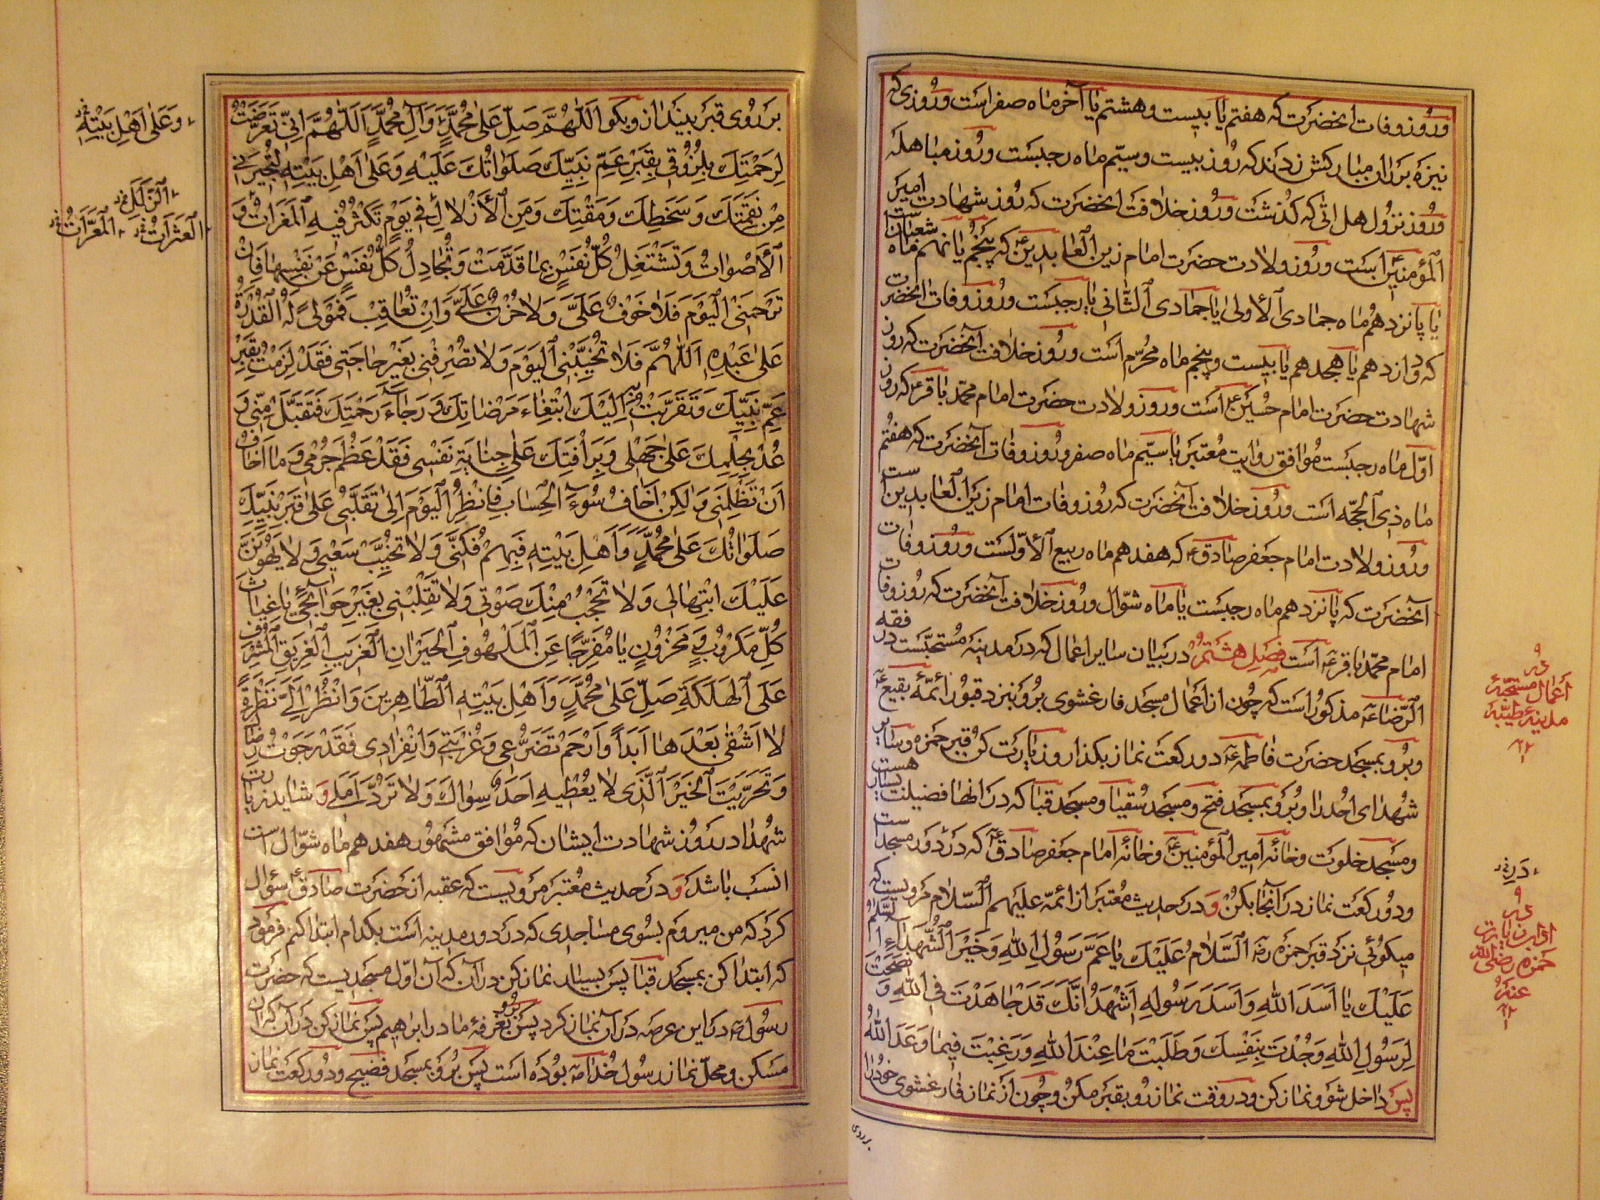 وروز وفات آنحضرت که هفتم یا بیست و هشتم یا آخر ماه صفر است و روزی که
نیزه بر ران مبارکش زدند که روز بیست و سیم ماه رجبست و روز مباهله
و روز نزول هل اتی که گذشت و روز خلافت آنحضرت که روز شهادت امیر
المؤمنین است و روز ولادت حضرت امام زین العابدین که پنجم یا نهم ماه شعبان
یا پانزدهم ماه جمادی الاولی یا جمادی الثانی یا رجبست و روز وفات آنحضرت
که دوازدهم یا هجدهم یا بیست و پنجم ماه محرّم است و روز خلافت آنحضرت که روز
شهادت حضرت امام حسین است و روز ولادت حضرت امام محمد باقر که روز
اوّل ماه رجبست موافق روایت معتبر یا سیّم ماه صفر و روز وفات آنحضرت که هفتم
ماه ذی الحجه است و روز خلافت آنحضرت که روز وفات امام زین العابدین است
و روز ولادت امام جعفر صادق که هفدهم ماه ربیع الاوّلست و روز وفات
آنحضرت که پانزدهم ماه رجبست یا ماه شوّال و روز خلافت آنحضرت که روز وفات
امام محمّد باقر است فصل هشتم در بیان سایر اعمال که در مدینه مستحبّست در فقه
الرّضا مذکور است که چون از اعمال مسجد فارغ شوی برو بنزد قبور ائمّه بقیع
و برو بمسجد حضرت فاطمه دو رکعت نماز بکذار و زیارت کن قبر حمزه و سایر
شهدای احد را و برو بمسجد فتح و مسجد سقیا و مسجد قبا که در آنها فضیلت بسیار هست
و مسجد خلوت و خانه امیر المؤمنین و خانه امام جعفر صادق که در دور مسجد است
و دو رکعت نماز در آنجا بکن و در حدیث معتبر از ائمّه علیهم السلام مرویست که
میکوئی نزد قبر حمزه السّلام علیک یا عمّ رسول الله و خیر الشّهداء السّلام
علیک یا اسد الله و اسد رسوله اشهد انّک قد جاهدت فی الله و نصحت
لرسول الله وجدت بنفسک و طلبت ما عند الله و رغبت فیما وعد الله
پس داخل شو و نماز کن و در وقت نماز رو بقبر مکن و چون از نماز فارغ شوی خود را
بر روی
اعمال مستحبّه
مدینه طیّبه
در
زیارت
حمزه رضی الله
عنه
بر روی قبر بینداز و بکو اللّهمّ صلّ علی محمّد و آل محمّد اللّهمّ انّی تعرّضت
لرحمتک بلزوقی بقبر عمّ نبیّک صلواتک علیه و علی اهل بیته لتجیرنی
من نقمتک و سخطک و مقتک و من الازلال فی یوم تکثر فیه المعرّات و
الاصوات و تشتغل کلّ نفس بما قدّمت و تجادل کلّ نفس عن نفسها فان
ترحمنی الیوم فلا خوف علیّ و لا حزن علیّ و ان تعاقب فمولی له القدرة
علی عبده اللّهمّ فلا تخیّبنی الیوم و لا تصرفنی بغیر حاجتی فقد لزمت بقبر
عمّ نبیّک و تقرّبت به الیک ابتغاء مرضاتک و رجاء رحمتک فتقبّل منّی و
عد بحلمک علی جهلی و برأفتک علی جنایة نفسی فقد عظم جرمی و ما اخاف
ان تظلمنی و لکن اخاف سوء الحساب فانظر الیوم الی تقلّبی علی قبر عمّ نبیّک
صلواتک علی محمّد و اهل بیته فبهم فکّنی و لا تخیّب سعیی و لا یهونن
علیک ابتهالی و لا تحجب منک صوتی و لا تقلبنی بغیر حوائجی یا غیاث
کلّ مکروب و محزون یا مفرّجا عن الملهوف الحیران الغریب الغریق المشرف
علی الهلکة صلّ علی محمّد و اهل بیته الطّاهرین و انظر الیّ نظرة
لا اشقی بعدها ابدا و ارحم تضرّعی و غربتی و انفرادی فقد رجوت رضاک
و تحرّیت الخیر الّذی لا یعطیه احد سواک و لا تردّ املی و شاید زیارت
شهدا در روز شهادت ایشان که موافق مشهور هفدهم ماه شوّال است
انسب باشد و در حدیث معتبر مرویست که عقبه از حضرت صادق سؤال
کرد که من میروم بسوی مساجدی که در دور مدینه است بکدام ابتدا کنم فرمود
که ابتدا کن بمسجد قبا پس بسیار نماز کن در آن که آن اوّل مسجدیست که حضرت
رسول در این عرصه در آن نماز کرد پس برو بغرفه مادر ابراهیم پس نماز کن در آن که آن
مسکن و محل نماز رسول خدا بوده است پس برو بمسجد فضیح و دو رکعت نماز
و علی اهل بیته
الزّلل
العثرات
المعرّات